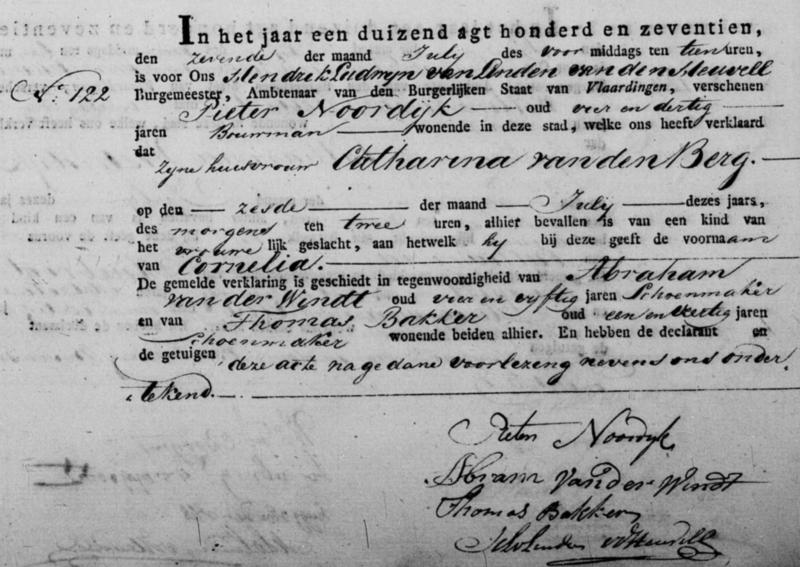 In het jaar een duizend agt honderd en zeventien,
den zevende der maand July des voor middags ten tien uren,
is voor Ons Hendrik Ludwyn van Linden van den Heuvell
N.º 122 Burgemeester, Ambtenaar van den Burgerlijken Staat van Vlaardingen, verschenen
Pieter Noordyk oud vier en dertig
jaren Bouwman wonende in deze stad, welke ons heeft verklaard
dat
zyne huisvrouw Catharina van den Berg.
op den zesde der maand July dezes jaars,
des morgens ten twee uren, alhier bevallen is van een kind van
het vrouwe lijk geslacht, aan hetwelk hy bij deze geeft de voornaam
van Cornelia.
De gemelde verklaring is geschiedt in tegenwoordigheid van Abraham
van der Windt oud vier en vyftig jaren Schoenmaker
en van Thomas Bakker oud een en veertig jaren
Schoenmaker wonende beiden alhier. En hebben de declarant en
de getuigen deze acte na gedane voorlezing nevens ons onder,
tekend.
Pieter Noordyk
Abram Van der Windt
Thomas Bakker